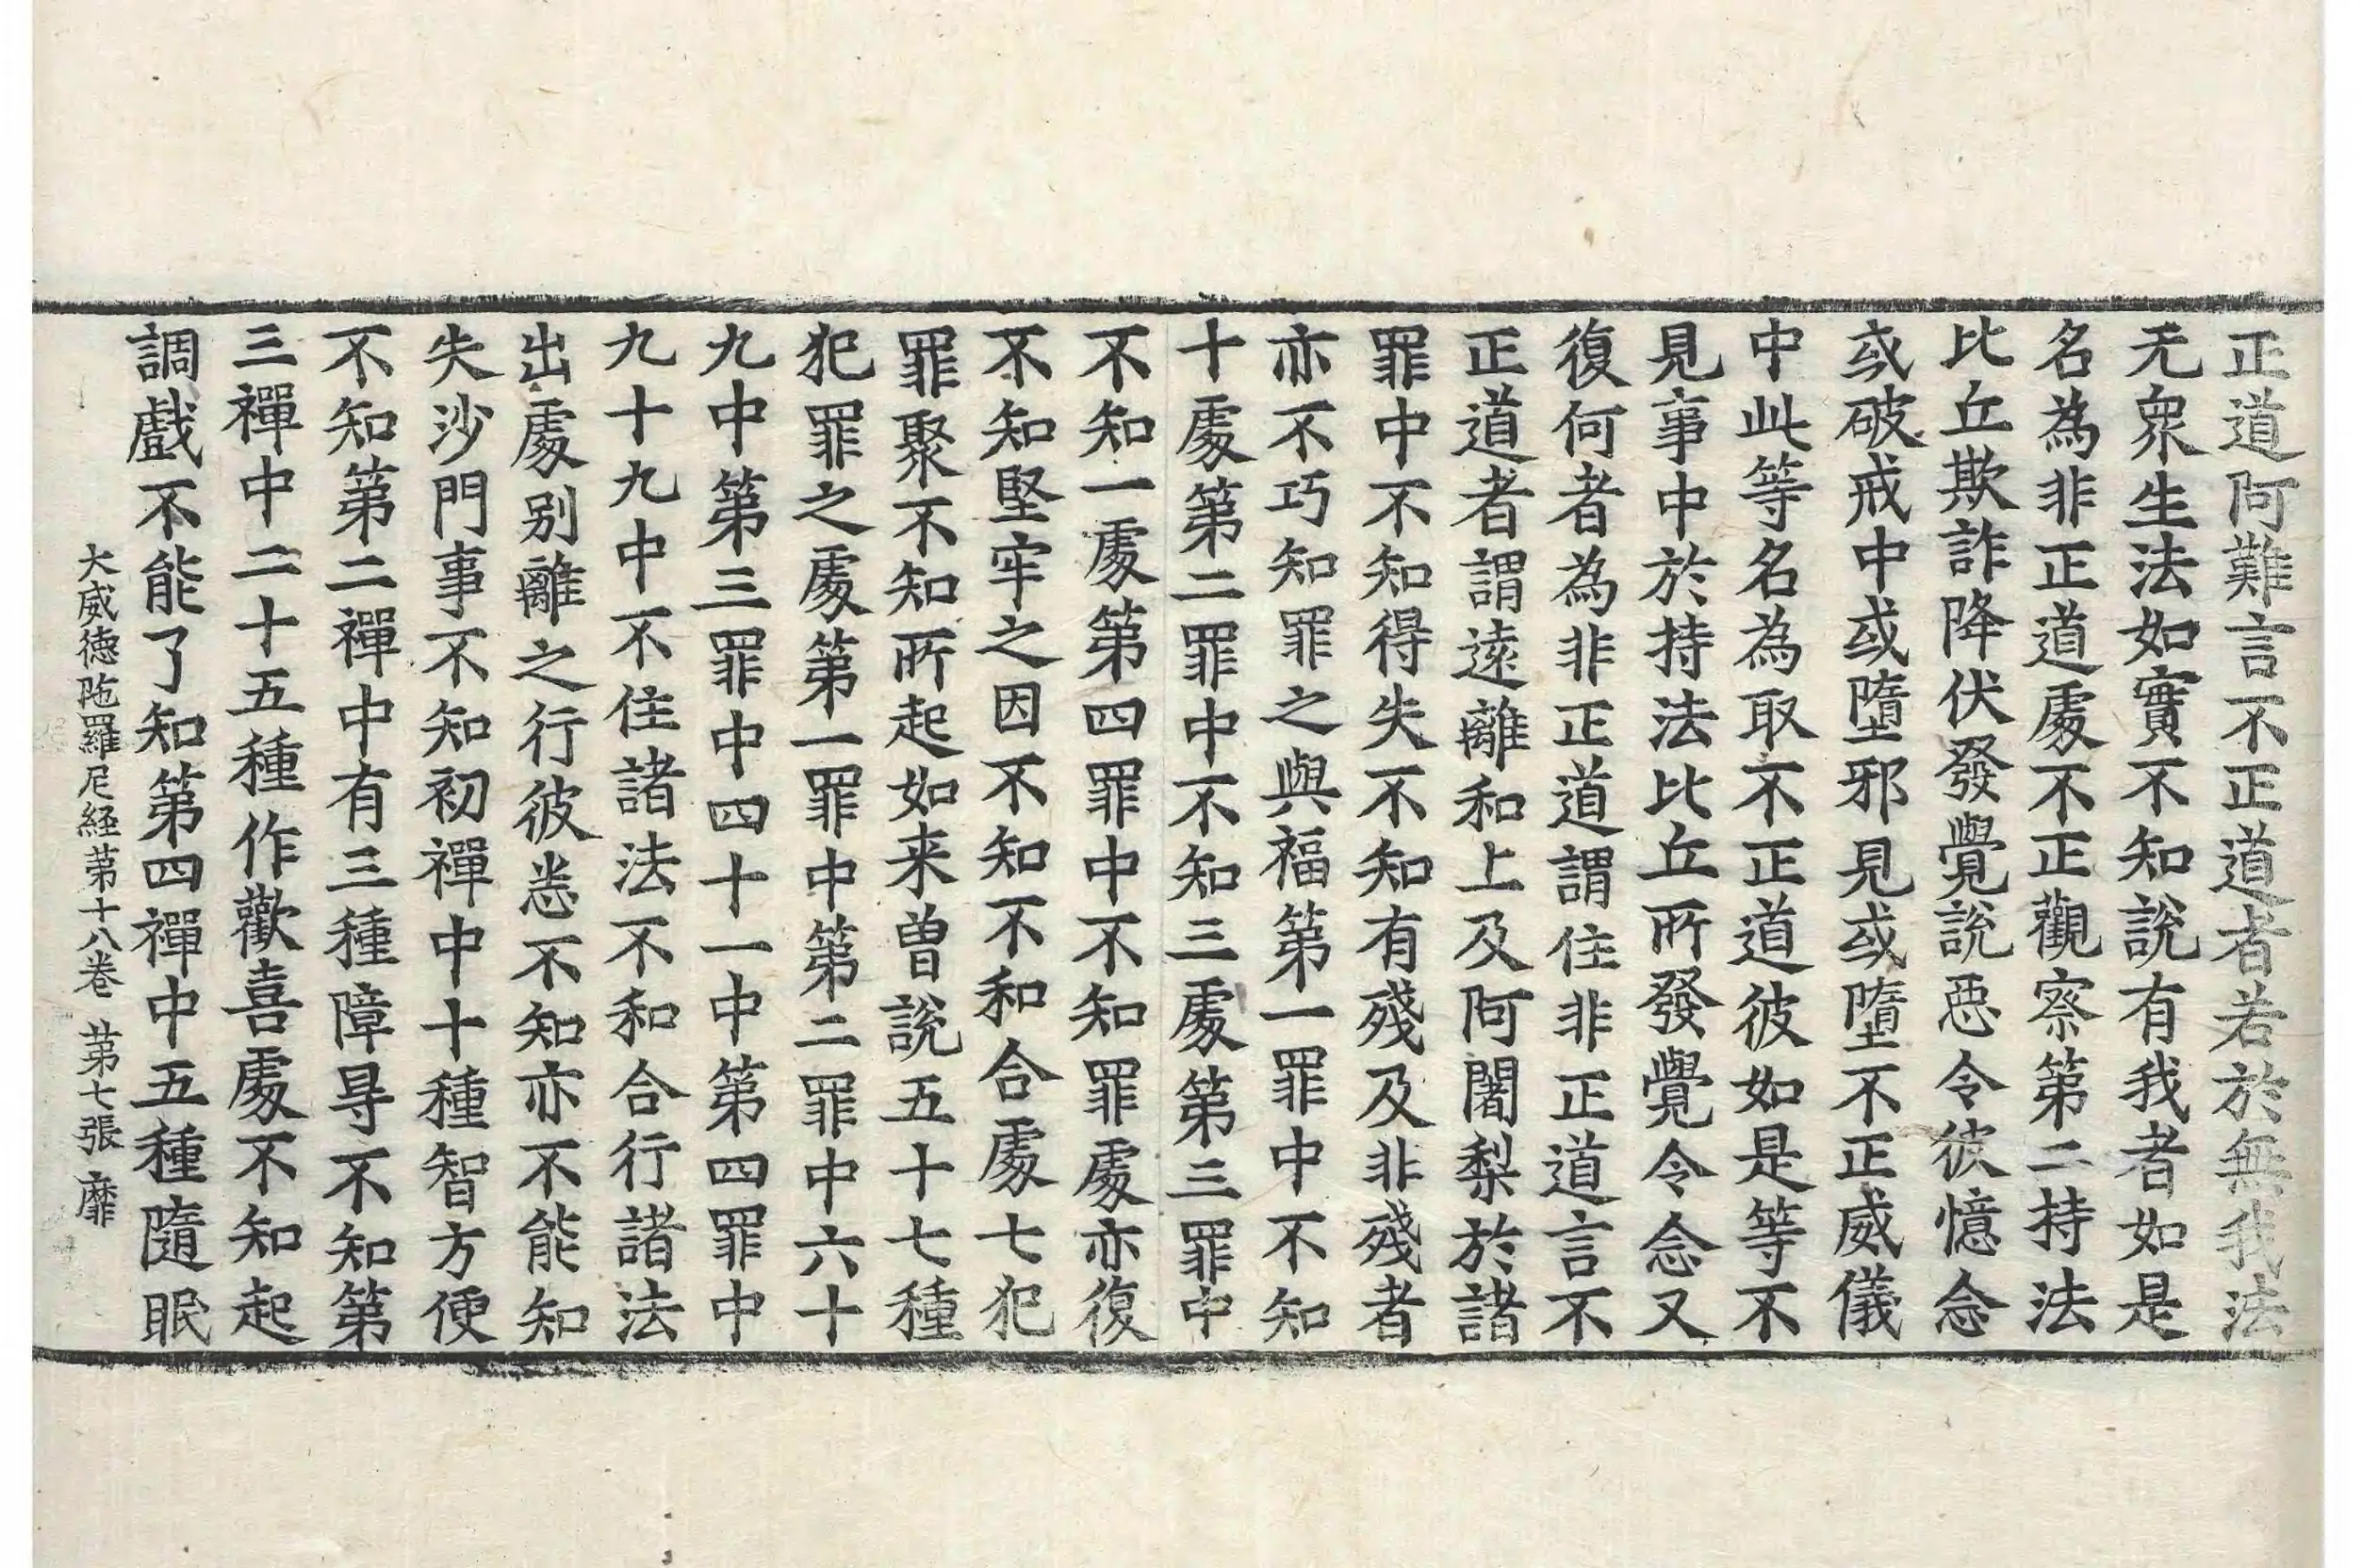 正道阿難言不正道者若於無我法
无衆生法如實不知說有我者如是
名為非正道處不正觀察第二持法
比丘欺詐降伏發覺說惡令彼憶念
或破戒中或墮邪見或墮不正威儀
中此等名為取不正道彼如是等不
見事中於持法比丘所發覺令念又
復何者為非正道謂住非正道言不
正道者謂遠離和上及阿闍梨於諸
罪中不知得失不知有殘及非殘者
亦不巧知罪之與福第一罪中不知
十處第二罪中不知三處第三罪中
不知一處第四罪中不知罪處亦復
不知堅牢之因不知不和合處七犯
罪聚不知所起如来曽說五十七種
犯罪之處第一罪中第二罪中六十
九中第三罪中四十一中第四罪中
九十九中不住諸法不和合行諸法
出處别離之行彼悉不知亦不能知
失沙門事不知初禪中十種智方便
不知第二禪中有三種障㝵不知第
三禪中二十五種作歡喜處不知起
調戲不能了知第四禪中五種隨眠
大威德陁羅尼経苐十八卷 苐七張 靡